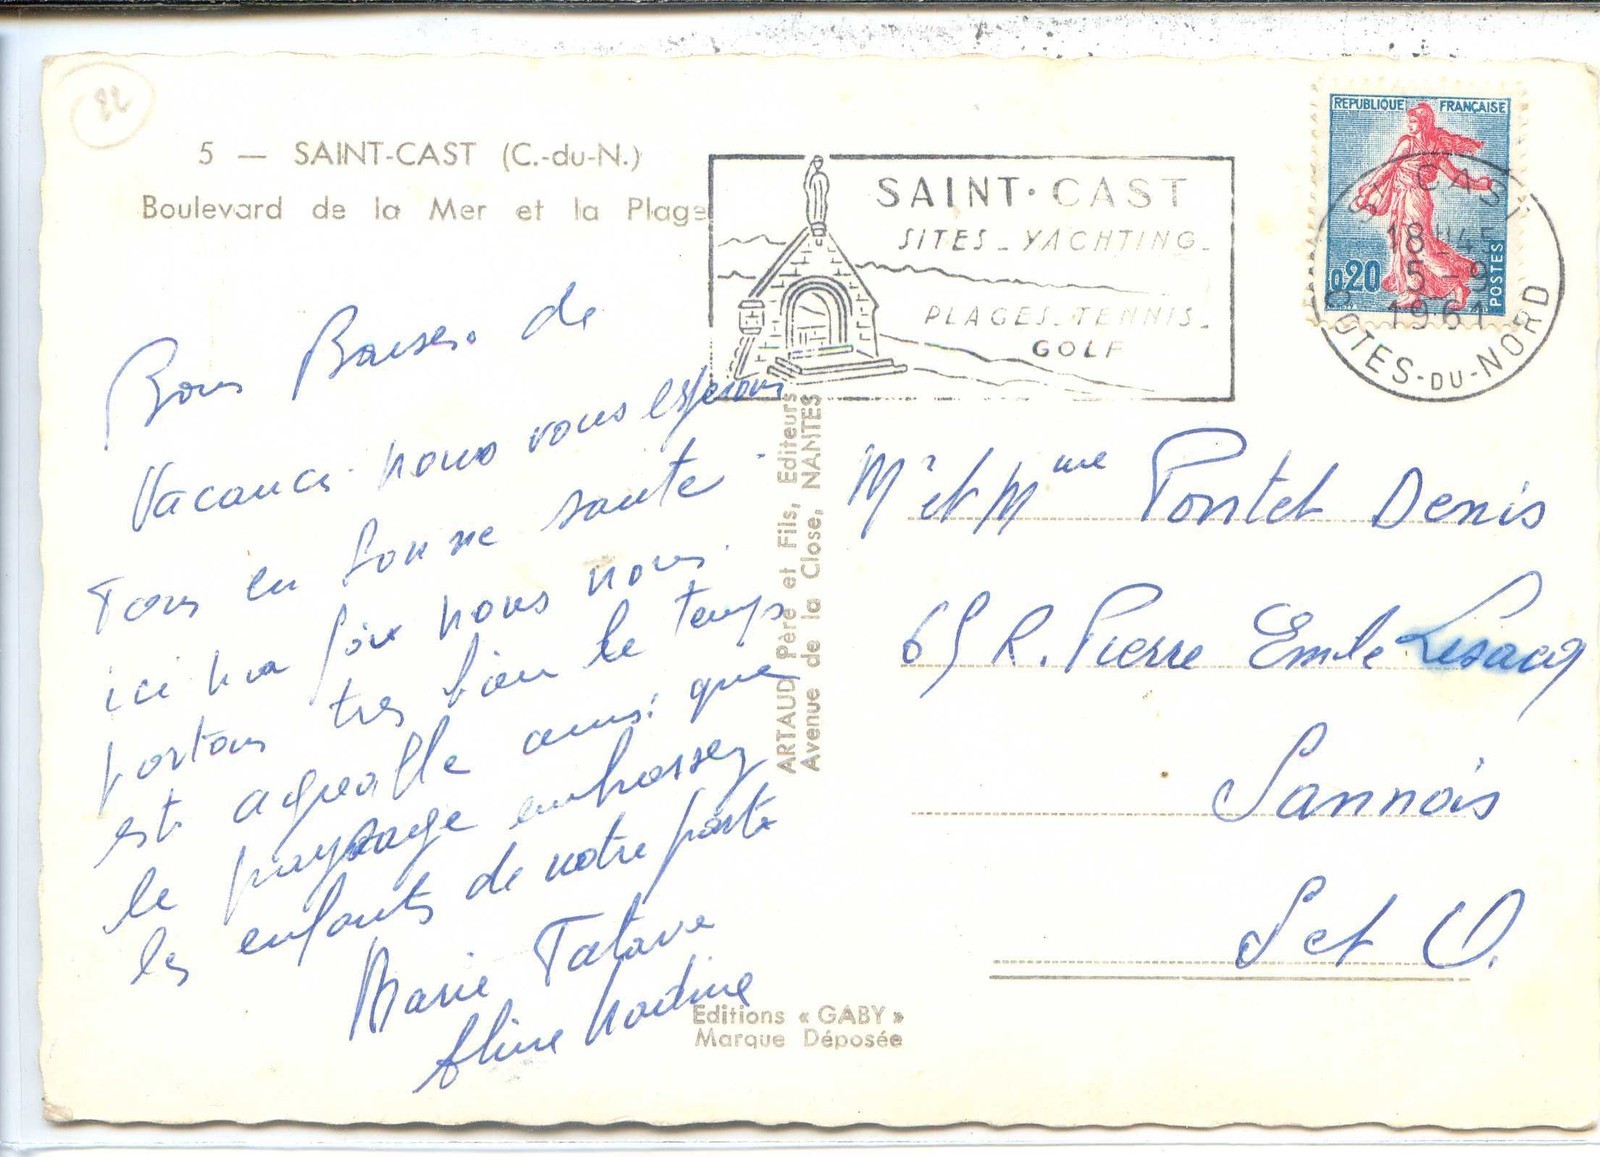 22
5 — SAINT-CAST (C.-du-N.)
Boulevard de la Mer et la Plage
SAINT·CAST
SITES_YACHTING_
PLAGES_TENNIS_
GOLF
REPUBLIQUE FRANÇAISE
0,20
POSTES
ST CAST
18H45
5-9
1961
COTES-DU-NORD
Bons Baisers de
Vacances nous vous esperons
Tous en bonne santé
ici nous nous
portons tres bien le temps
est agreable ainsi que
le paysage embrassez
les enfants de notre part
Marie Tatave
Aline Nadine
Mr et Mme Pontet Denis
65 R. Pierre Emile
Sannois
S et O.
ARTAUD Père et Fils, Editeurs
Avenue de la Close, NANTES
Editions « GABY »
Marque Déposée